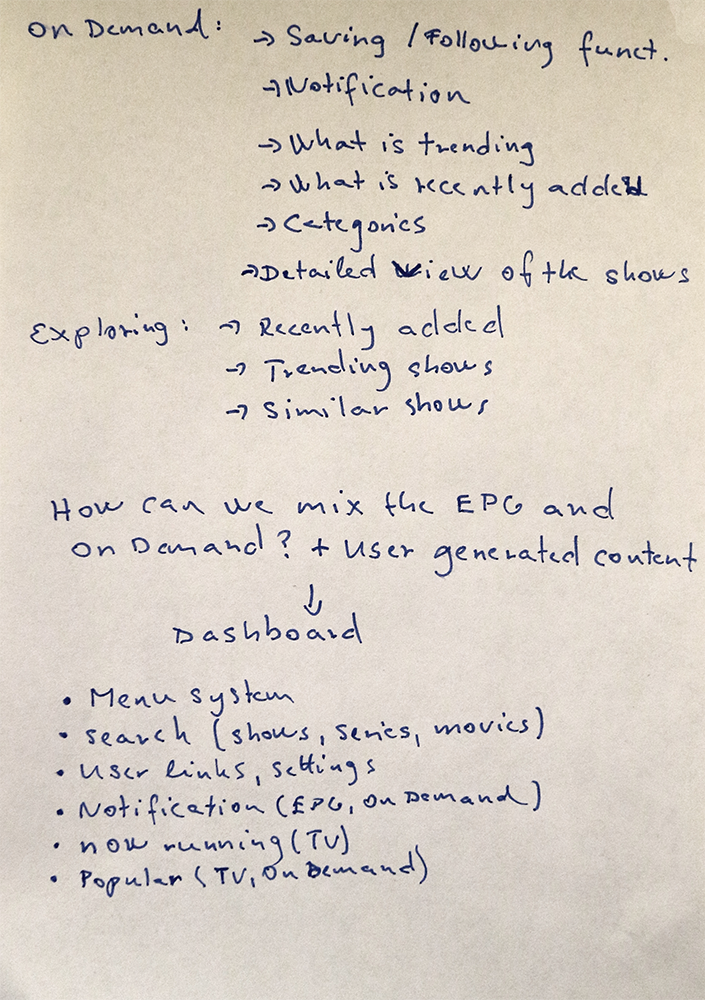 On Demand: → Saving / Following funct.
→ Notification
→ What is trending
→ What is recently added
→ Categories
→ Detailed view of the shows
Exploring: → Recently added
→ Trending shows
→ Similar shows
How can we mix the EPG and
On Demand? + User generated content
↓
Dashboard
• Menu system
• search (shows, series, movies)
• User links, settings
• Notification (EPG, On Demand)
• now running (TV)
• Popular (TV, On Demand)